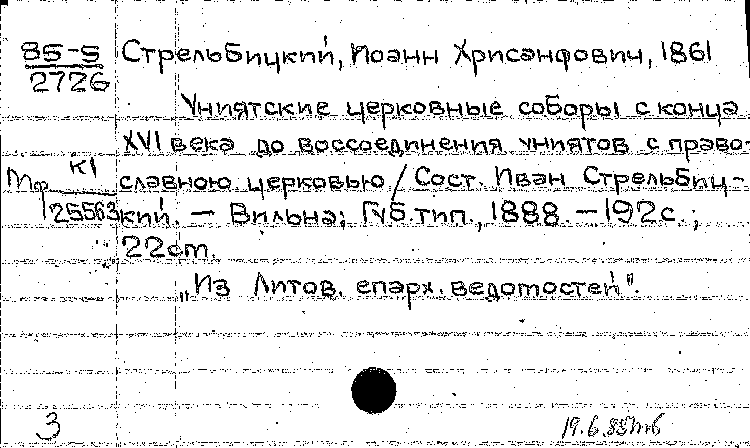 85-5 Стрельбицкий, Иоанн Хрисанфович, 1861
2726
Униятские церковные соборы с конца
XVI века до воссоединения униятов с право-
Мф К1 славною церковью / Сост. Иван Стрельбиц-
25563 кий. — Вильна; Губ. тип., 1888. — 192с.;
22cm.
„Из Литов. епарх. ведомостей".
3
19.6.85